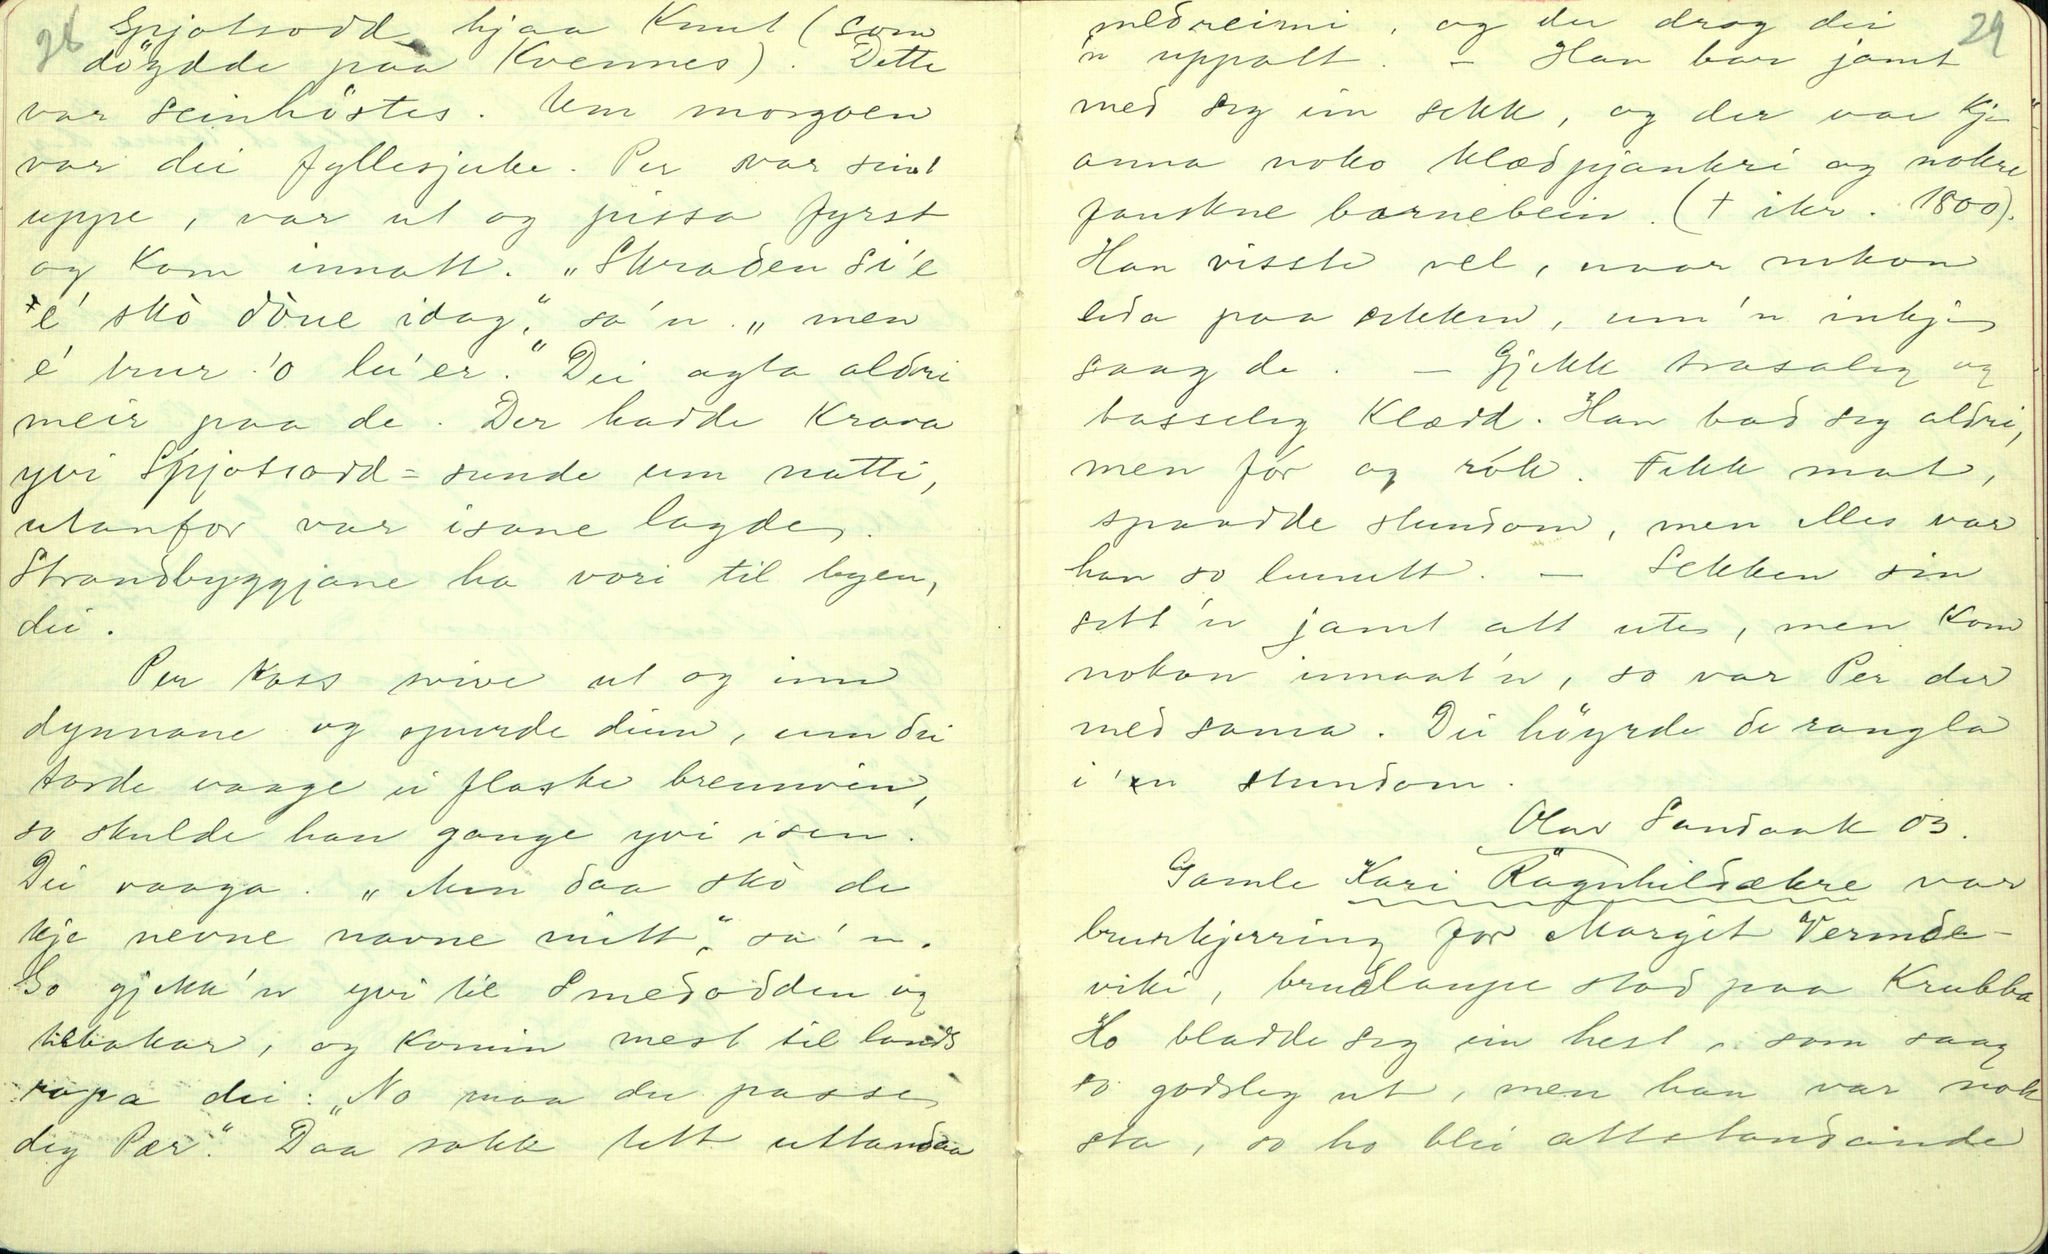 28
Spjotsodd hjaa Knut (som
döydde paa Kvennes). Dette
var seinhöstes. Um morgoen
var dei fyllesjuke. Per var sint
uppe, var ut og pissa fyrst
og kom innatt. „Skraden si'e
e' skò dòne idag," sa'n „men
e' trur 'o lu'er." Dei agta aldri
meir paa de. Der hadde Krava
yvi Spjotsodd-sunde um natti,
utanfor var isane lagde.
Strandbyggjane ha vori til byen,
dei.
Per Kass svive ut og inn
dynnane og spurde deim, um dei
torde vaage ei flaske brennvin,
so skulde han gange yvi isen.
Dei vaaga. „Men daa skò de
kje nevne navne mitt," sa'n.
So gjekk'n yvi til Smedodden og
tilbakar, og komin mest til lands
ropa dei: „No maa du passe
dig Per." Daa sokk tett uttanfaa
29
medreimi, og der drog dei
'n uppatt. – Han bar jamt
med seg ein sekk, og der var kje
anna noko klædpjankri og nokre
fauskne barnebein. († ikr. 1800).
Han visste vel, naar nokon
leda paa sekken, um'n inkje
saag de. – Gjekk trasaleg og
tasseleg klædd. Han bad seg aldri,
men fór og rók. Fekk mat,
spaadde stundom, men elles var
han so lunutt. – Sekken sin
sett'n jamt att ute, men kom
nokon innaat'n, so var Per der
med sama. Dei höyrde de rangla
i'n stundom.
Olav Sandaak 03.
Gamle Kari Ragnhildsekre var
brurkjerring for Margit Vermde-
viki, brudlaupe stod paa Krabba
Ho bladde seg ein hest, som saag
so godsleg ut, men han var nok
sta, so ho blei attstandande